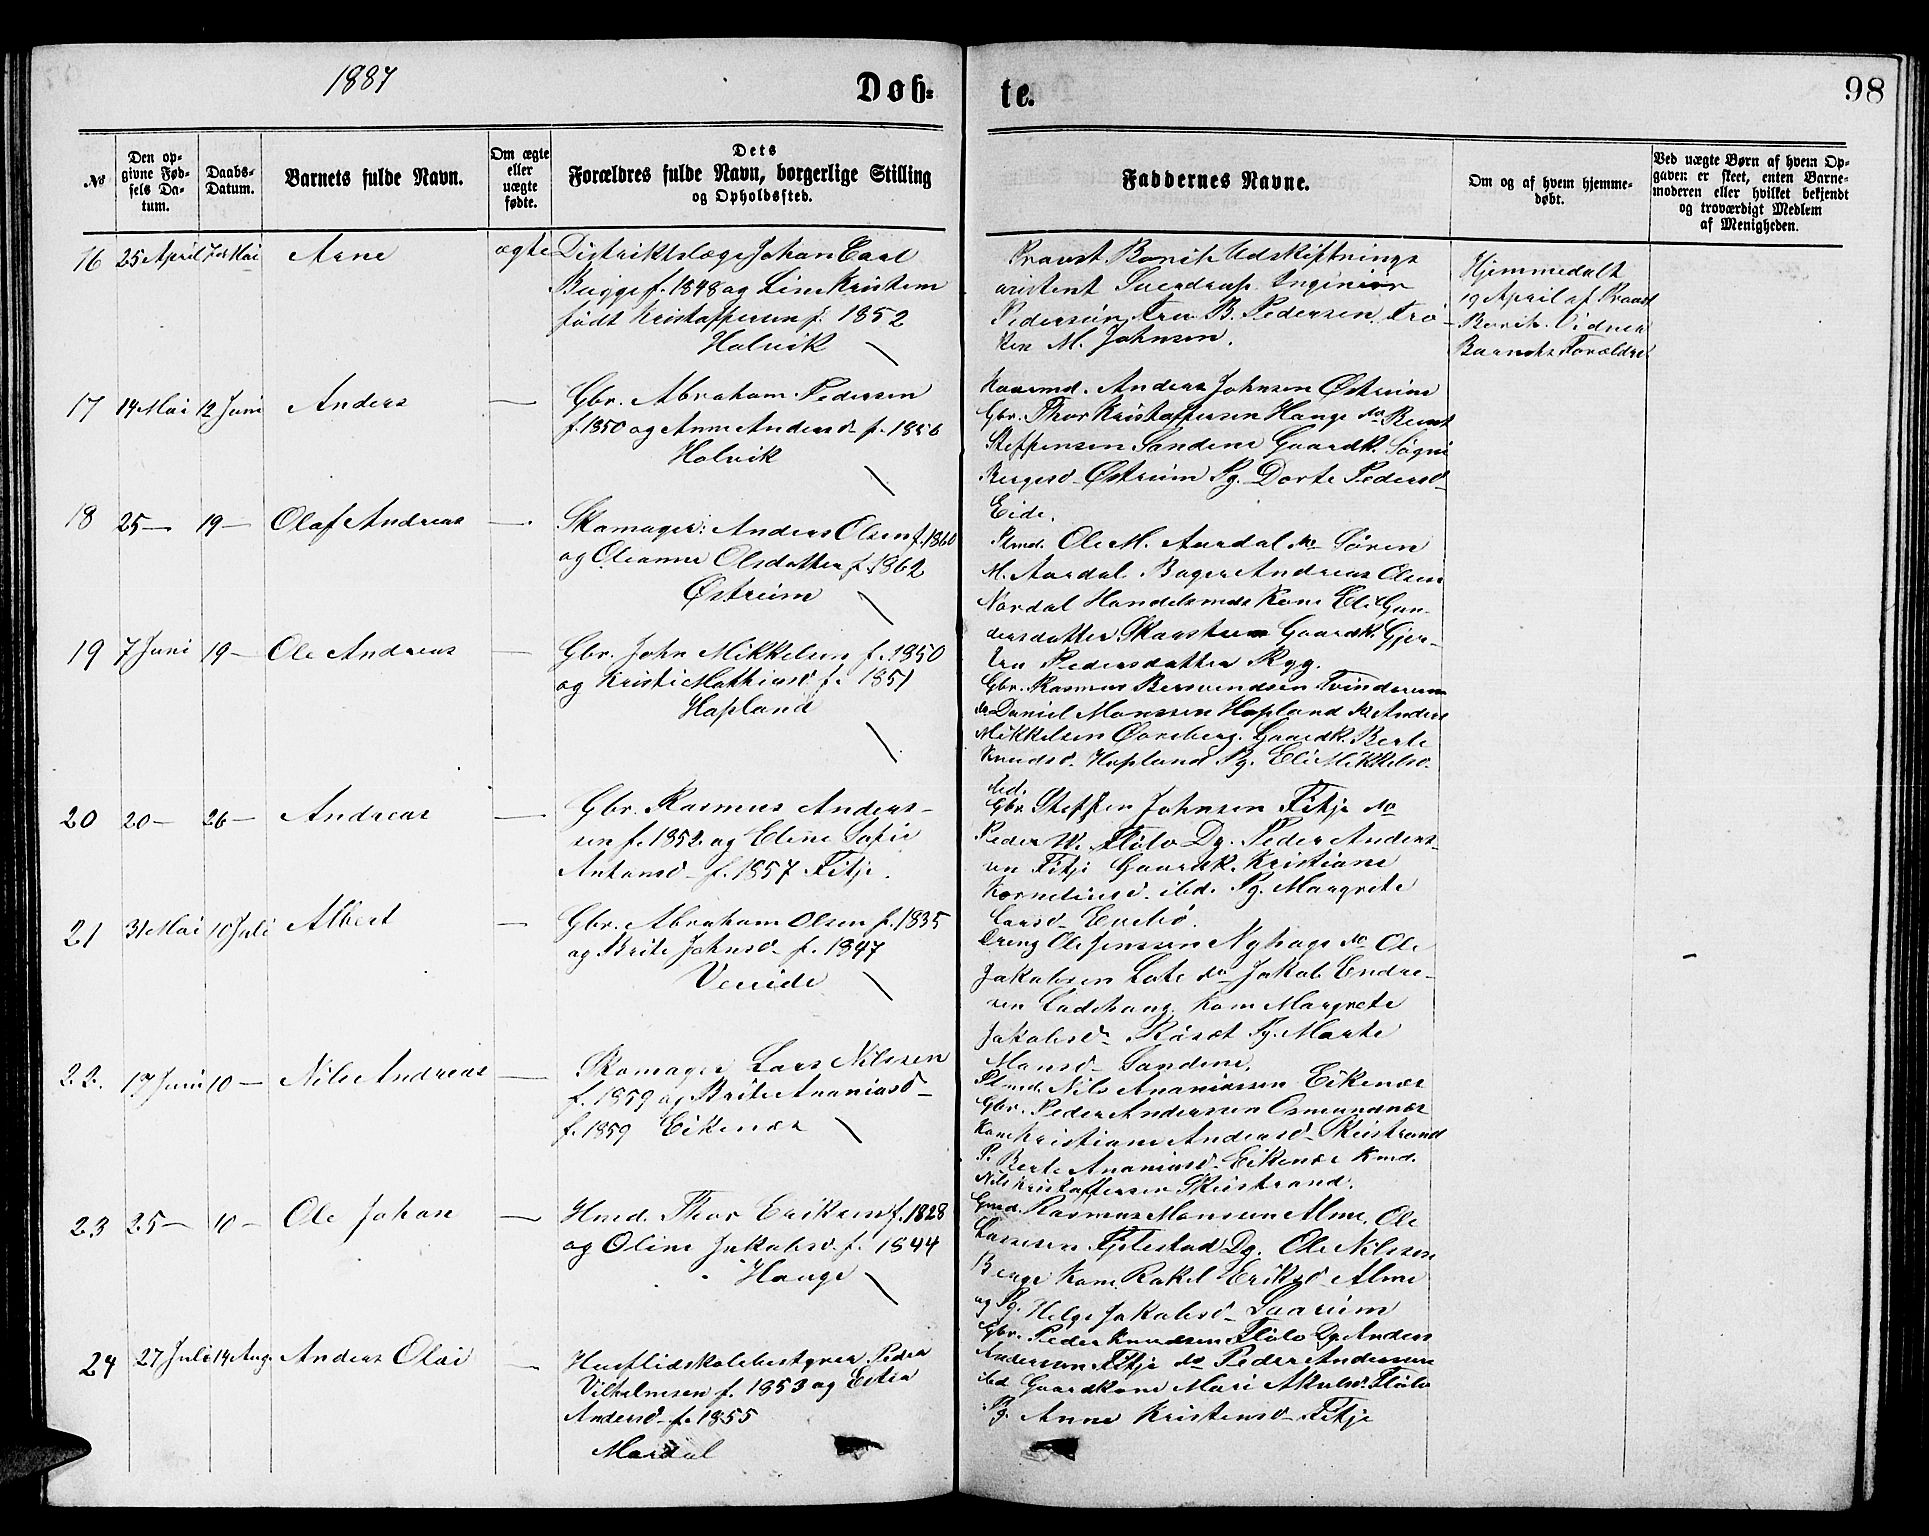 1887
Døb-
te.
98
No
Den op-
givne Fød-
sels Da-
tum.
Daabs-
Datum.
Barnets fulde Navn.
Om ægte
eller
uægte
fødte.
Dets
Forældres fulde Navn, borgerlige Stilling
og Opholdssted.
Faddernes Navne.
Om og af hvem hjemme-
døbt.
Ved uægte Børn af hvem Op-
gaven er skeet, enten Barne-
moderen eller hvilket bekjendt
og troværdigt Medlem
af Menigheden.
16 25 April Mai Arne ægte Distriktslæge Johan Carl
f. 1848 og Line Kristem
født Kristoffersen f. 1852
Holvik
Provst Barik Udskiftnings
asistent Sverdrup Inginiör
Pedersen, Fru B. Pedersen Frö-
ken M. Johnsen.
Hjemmedøbt
19 April af Provst
Barik. Vidner
Barnets Forældre
17 14 Mai 12 Juni Anders —
Gbr. Abraham Pedersen
f. 1850 og Anne Andersd f. 1856
Holvik
Anders Johnsen Østreim
Gbr. Thor Kristoffersen Hauge do Bernt
Steffensen Sandene Gaardk. Søgni
Bergesd Østreim Pg. Dorte Pedersd
Eide.
18 25 — 19 — Olaf Andreas —
Skomager: Anders Olsen f. 1860
og Oleanna Olsdatter f. 1862
Østreim
Plmd. Ole M. Aardal do Søren
M. Aardal Bager Andreas Olsen
Nordal Handelsmds Kone Eli Gun-
dersdatter Skaastun Gaardk. Gjer-
tru Pedersdatter Ryg.
19 7 Juni 19 — Ole Andreas —
Gbr. John Mikkelsen f. 1850
og Kristi Mathiasd f. 1851
Hopland
Gbr. Rasmus Bersvendsen Tvinderein
do Daniel Monssen Hopland do Anders
Mikkelsen Øvreberg. Gaardk. Berte
Knudsd. Hopland Pg. Eli Mikkelsd
ibd.
20 20 — 26 — Andreas —
Gbr. Rasmus Anders-
sen f. 1852 og Eline Sofie
Antonsd f. 1857 Fitje.
Gbr Steffen Johnsen Fitje do
Peder W. Flölo Dg. Peder Anders-
sen Fitje Gaardk. Kristiane
Korneliusd ibd. Pg. Margrete
Larsd Evebø.
21 31 Mai 10 Juli Albert —
Gbr. Abraham Olsen f. 1835
og Brite Johnsd f. 1847
Vereide
Dreng Ole Jenssen Nyhage do Ole
Jakobsen Lote do Jakob Endre-
sen Ladehaug Kone Margrete
Jakobsd Röset Pg. Marte
Monsd Sandene.
22. 17 Juni 10 — Nils Andreas —
Skomager Lars Nilssen
f. 1859 og Brite Ananiasd
f. 1859 Eikenæs
Plmd. Nils Ananiassen Eikenæs
Gbr. Peder Anderssen Osmundnæs
Kone Kristiane Andersd Skeistrand
P. Berte Ananiasd Eikenæs Kmd.
Nils Kristoffersen Skeistrand.
23 25 — 10 — Ole Johan —
Hmd. Thor Eriksen f. 1828
og Oline Jakobsd f. 1844
Hauge
Gmd. Rasmus Monssen Alme, Ole
Larssen Fjelestad Dg. Ole Nilssen
Berge Kone Rakel Eriksd Alme
og Pg. Helge Jakobsd Saareim
24 27 Juli 14 Aug. Anders Olai —
Husflidskolebestyrer Peder
Vilhelmsen f. 1853 og Ester
Andersd f. 1855
Mardal
Gbr. Peder Knudssen Flölo Dg. Anders
Anderssen Fitje do Peder Anderssen
ibd Gaardkone Mari Flölo
Pg. Anne Kristensd Fitje